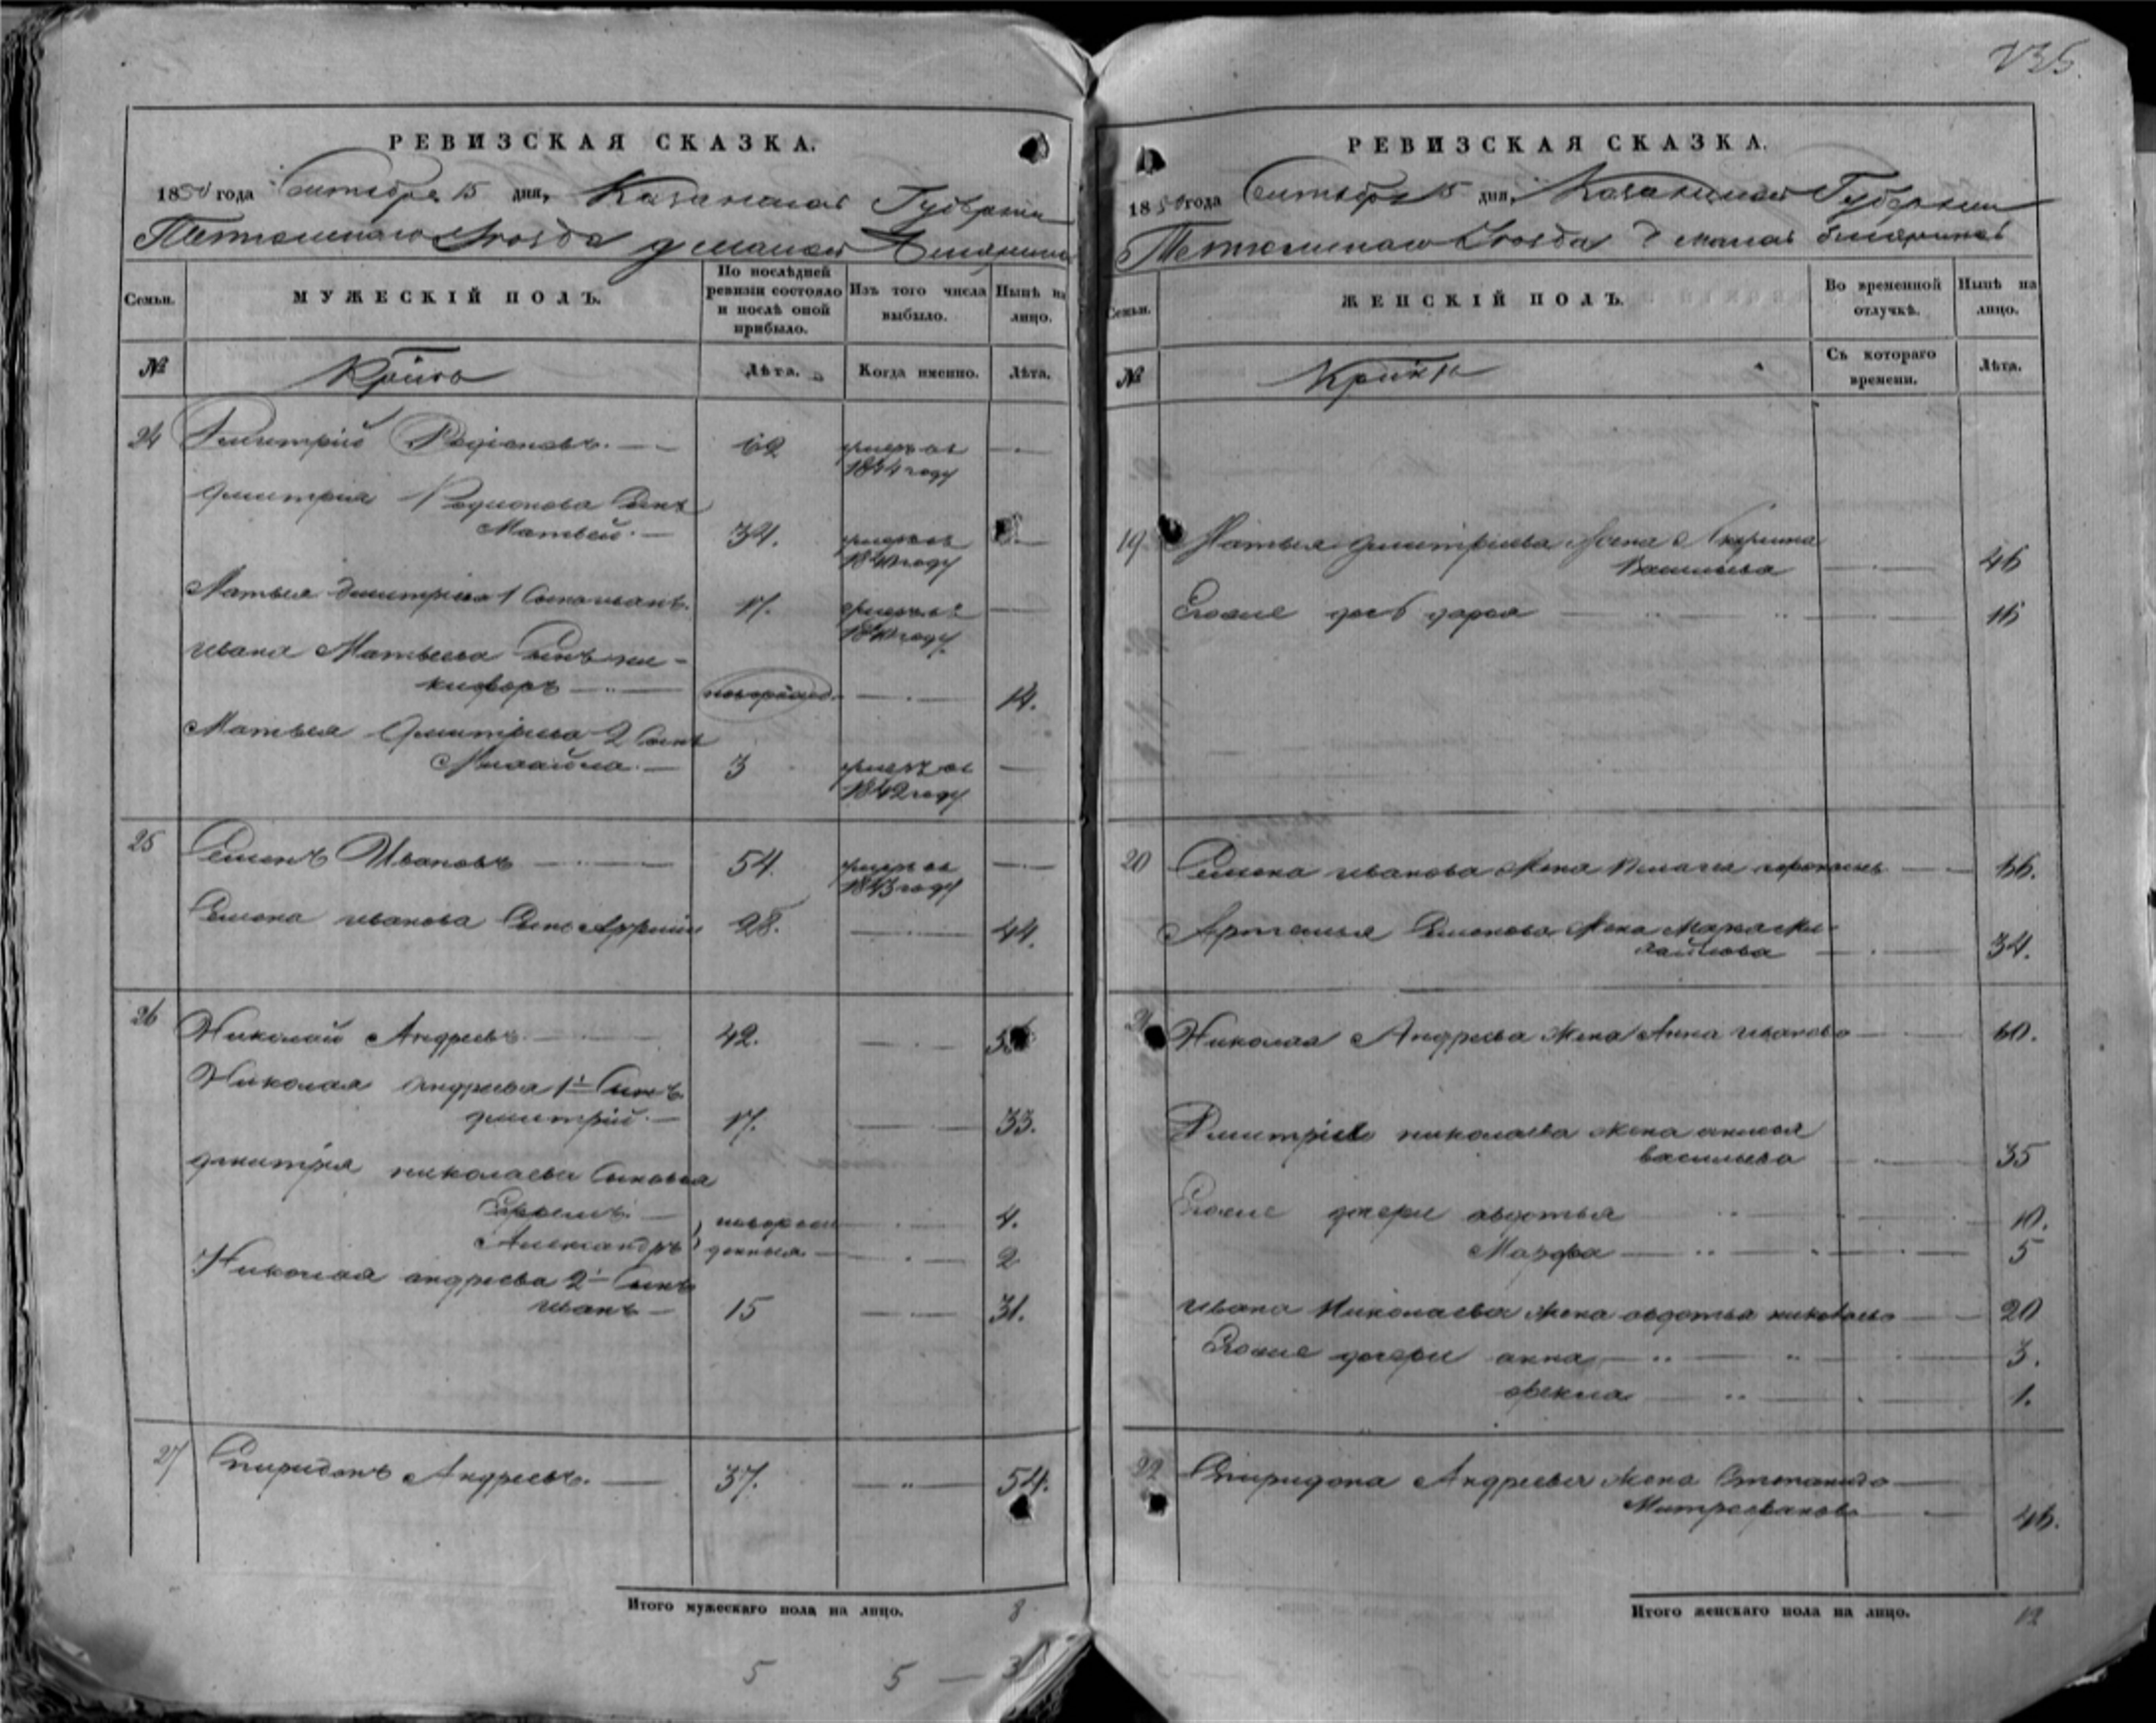 235.
РЕВИЗСКАЯ СКАЗКА.
1850 года Сентября 15 дня, Казанской Губернии
Тетюшскаго Уезда д малой
Семьи.
МУЖЕСКІЙ ПОЛЪ.
По послѣдней ревизіи состояло и послѣ оной прибыло.
Изъ того числа выбыло.
Нынѣ на лицо.
№
Лѣта.
Когда именно.
Лѣта.
24 Дмитрій Родіоновъ. — 62 умеръ въ —
1844 году
Дмитрия Родионова Сынъ
Матвей. — 34. умеръ въ —
1840 году
Матвея Дмитріева 1 Сынъ иванъ. 17. умеръ въ —
1840 году.
ивана Матвеева Сынъ ни-
кифоръ — новорожд. — 14.
Матвея Дмитриева 2 Сынъ
Михайла. — 3 умеръ въ —
1842 году
25 Семенъ Ивановъ — 54. умеръ въ —
1843 году
Семена иванова Сынъ 28. — 44.
26 Николай Андреевъ. — 42. —
Николая андреева 1й Сынъ
дмитрій. — 17. — 33.
дмитрія николаева Сыновья
— новорож — 4.
Александръ денныя — 2
Николая андреева 2й Сынъ
иванъ — 15 — 31.
27 Спиридонъ Андреевъ. — 37. — 54.
Итого мужескаго пола на лицо. 8
5 5 — 3
РЕВИЗСКАЯ СКАЗКА.
1850 года Сентября 15 дня, Казанской Губернии
Тетюшскаго Уезда д малой
Семьи.
ЖЕНСКІЙ ПОЛЪ.
Во временной отлучкѣ.
Нынѣ на лицо.
№
Съ котораго времени.
Лѣта.
19 Матвея Дмитріева Жена
Васильева — 46
Егоже дочь дарья — 16
20 Семена иванова Жена — 66.
Артемья Семенова Жена Марья Ми-
хайлова — 34.
21 Николая Андреева Жена Анна иванова — 60.
Дмитрія николаева жена
васильева — 35
Егоже дочери авдотья — 10.
Марфа — 5
ивана Николаева жена авдотья николаева — 20
Егоже дочери анна — 3.
фекла — 1.
22 Спиридона Андреева жена Степанида —
Митрофанова — 46.
Итого женскаго пола на лицо. 12